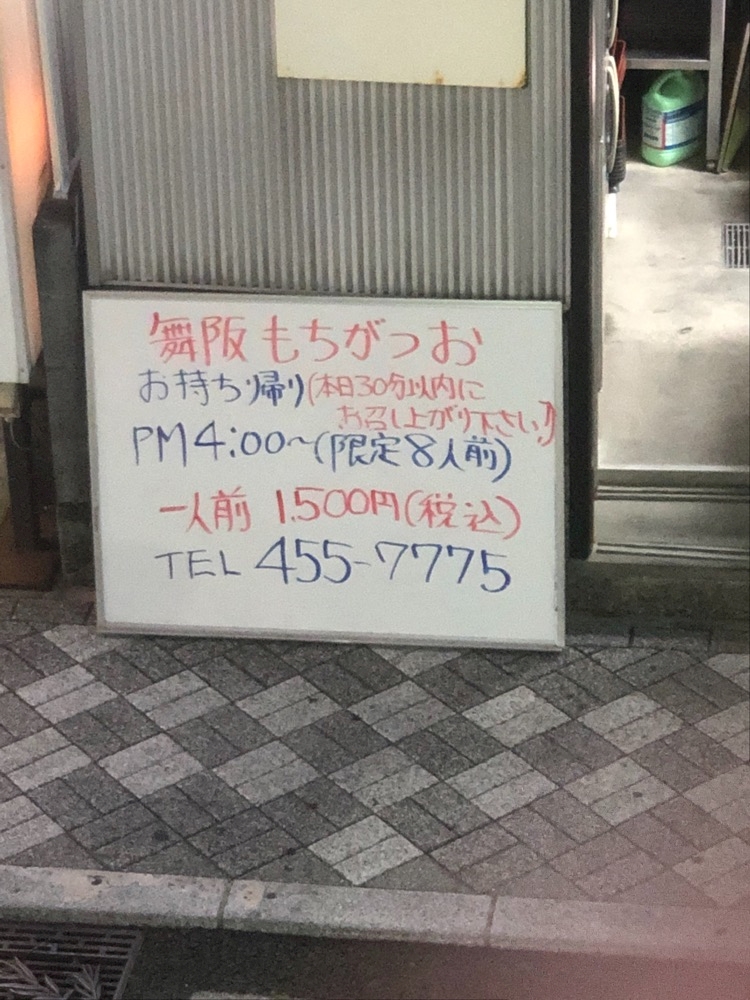 舞阪もちがつお
お持ち帰り(本日30分以内に
お召し上がり下さい!)
PM4:00~(限定8人前)
一人前 1,500円(税込)
TEL 455-7775